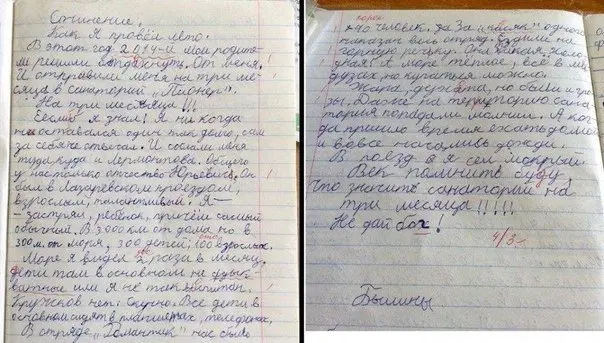 Сочинение.
Как я провёл лето.
В этот год 2014-й мои родите-
ли решили отдохнуть. От меня.
И отправили меня на три ме-
сяца в санаторий „Пионер".
На три месяца!!!
Если я знал! Я ни когда
не оставался один так долго, сам
за себя не отвечал. И сослали меня
туда, куда и Лермонтова. Общего
у нас только отчество Юрьевич. Он
был в Лазаревском проездом,
взрослым, талантливым. Я —
— застрял, ребёнок, причём самый
обычный. В 3000 км от дома, но в
300 м. от моря, 300 детей, 100 взрослых.
Море я видел 2 раза в месяц.
дети там в основном не
или я не так воспитан.
Кружков нет. Скучно. Все дети в
основном сидят в планшетах, телефонах.
В отряде „Романтик" нас было
40 человек. За „ " одного
наказан весь отряд. Ездили на
горную речку. Она дикая, холо-
дная! А море тёплое, всё в ме-
дузах, но купаться можно.
Жара, духота, но были и гро-
зы. Даже на территорию сана-
тория попадали молнии. А ког-
да пришло время ехать домой
и вовсе начались дожди.
В поезд я сел мокрый.
Век помнить буду,
что значит санаторий на
три месяца!!!!!
Не дай бог!
4/3-
Былины